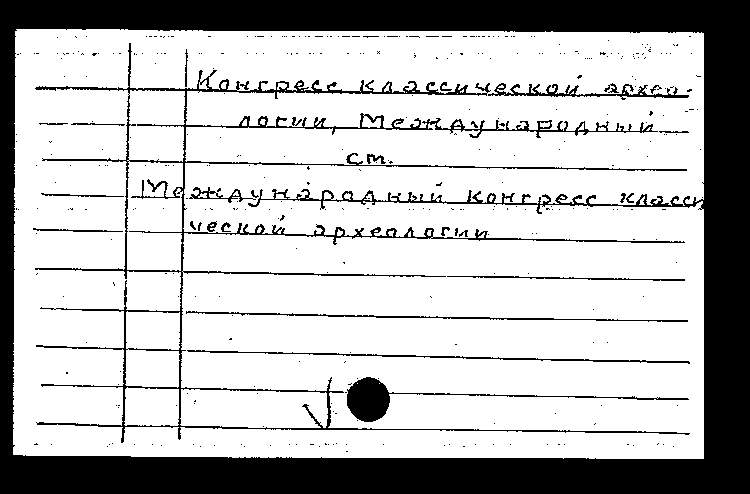 Конгресс классической архео-
логии, Международный
см.
Международный конгресс класси
ческой археологии